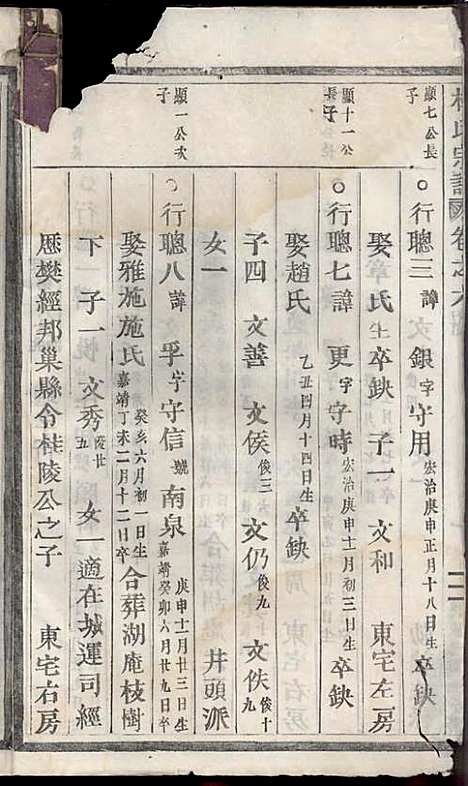 氏宗譜 卷之六
顯七公長子
○行聰三 諱銀 字守用 宏治庚申正月十八日生 卒缺
娶章氏 生卒缺 子一 文和 東宅左房
顯十一公長子
○行聰七 諱更 字守時 宏治庚申十二月初三日生 卒缺
娶趙氏 乙丑四月十四日生 卒缺
子四 文善 文侯 俊三 文仍 俊九 文佚 俊十九
女一 井頭派
顯一公次子
○行聰八 諱孚 字守信 號南泉 庚申十二月廿三日生 嘉靖癸卯六月廿九日卒
娶雅施施氏 癸亥六月初一日生 嘉靖丁未二月十二日卒 合葬湖庵枝樹
下 子一 文秀 俊廿五 女一 適在城運司經
歷樊經邦巢縣令桂陵公之子 東宅右房